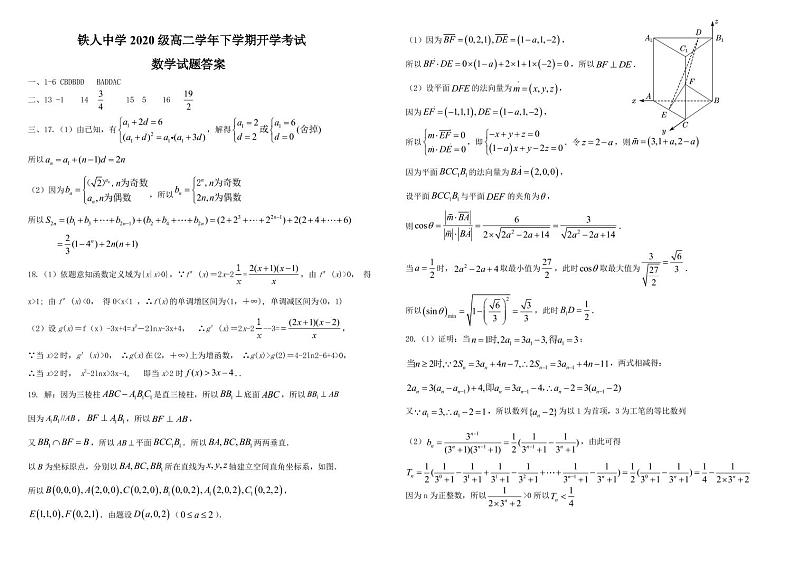 铁人中学 2020 级高二学年下学期开学考试
数学试题答案
一、1-6 CBDBDD BADDAC
二、13 -1 14 3/4 15 5 16 19/2
三、17.（1）由已知，有{a₁+2d=6 (a₁+d)²=a₁•(a₁+3d)，解得{a₁=2 d=2 或{a₁=6 d=0 (舍掉)
所以aₙ=a₁+(n-1)d=2n
（2）因为bₙ={(√2)^(aₙ),n为奇数 aₙ,n为偶数，所以bₙ={2ⁿ,n为奇数 2n,n为偶数
所以S₂ₙ=(b₁+b₃+⋯+b₂ₙ₋₁)+(b₂+b₄+⋯+b₂ₙ)=(2+2³+⋯+2²ⁿ⁻¹)+2(2+4+⋯+6)
=2/3(1-4ⁿ)+2n(n+1)
18.（1）依题意知函数定义域为{x|x>0}，∵f′(x)=2x-2 1/x=2(x+1)(x-1)/x，由 f′(x)>0， 得
x>1; 由 f′(x)<0， 得 0<x<1 ，∴f(x)的单调增区间为(1，+∞)，单调减区间为(0，1)
（2）设 g(x)=f（x）-3x+4=x²-2lnx-3x+4， ∴g′(x)=2x-2 1/x--3==(2x+1)(x-2)/x，
∵当 x>2 时，g′(x)>0， ∴g(x)在(2，+∞)上为增函数， ∴g(x)>g(2)=4-2ln2-6+4>0，
∴当 x>2 时， x²-2lnx>3x-4， 即当 x>2 时f(x)>3x-4．.
19. 解：因为三棱柱ABC-A₁B₁C₁是直三棱柱，所以BB₁⊥底面ABC，所以BB₁⊥AB
因为A₁B₁//AB，BF⊥A₁B₁，所以BF⊥AB，
又BB₁∩BF=B，所以AB⊥平面BCC₁B₁．所以BA,BC,BB₁两两垂直．
以B为坐标原点，分别以BA,BC,BB₁所在直线为x,y,z轴建立空间直角坐标系，如图．
所以B(0,0,0),A(2,0,0),C(0,2,0),B₁(0,0,2),A₁(2,0,2),C₁(0,2,2)，
E(1,1,0),F(0,2,1)．由题设D(a,0,2)（0≤a≤2）．
（1）因为BF=(0,2,1),DE=(1-a,1,-2)，
所以BF·DE=0×(1-a)+2×1+1×(-2)=0，所以BF⊥DE．
（2）设平面DFE的法向量为m=(x,y,z)，
因为EF=(-1,1,1),DE=(1-a,1,-2)，
所以{m·EF=0 m·DE=0，即{-x+y+z=0 (1-a)x+y-2z=0．令z=2-a，则m=(3,1+a,2-a)
因为平面BCC₁B₁的法向量为BA=(2,0,0)，
设平面BCC₁B₁与平面DEF的夹角为θ，
则cosθ=|m·BA|/|m|·|BA|=6/(2×√(2a²-2a+14))=3/√(2a²-2a+14)．
当a=1/2时，2a²-2a+4取最小值为27/2，此时cosθ取最大值为3/√(27/2)=√6/3．
所以(sinθ)min=√(1-(√6/3)²)=√3/3，此时B₁D=1/2．
20.（1）证明：当n=1时,2a₁=3a₁-3,得a₁=3；
当n≥2时,∵2Sₙ=3aₙ+4n-7,∴2Sₙ₋₁=3aₙ₋₁+4n-11，两式相减得：
2aₙ=3(aₙ-aₙ₋₁)+4,即aₙ=3aₙ₋₁-4,∴aₙ-2=3(aₙ₋₁-2)
又∵a₁=3,∴a₁-2=1，所以数列{aₙ-2}为以 1 为首项，3 为工笔的等比数列
（2）bₙ=3ⁿ⁻¹/((3ⁿ+1)(3ⁿ⁻¹+1))=1/2(1/(3ⁿ⁻¹+1)-1/(3ⁿ+1))，由此可得
Tₙ=1/2(1/(3⁰+1)-1/(3¹+1)+1/(3¹+1)-1/(3²+1)+⋯+1/(3ⁿ⁻¹+1)-1/(3ⁿ+1))=1/2(1/(3⁰+1)-1/(3ⁿ+1))=1/4-1/(2×3ⁿ+2)
因为 n 为正整数，所以1/(2×3ⁿ+2)>0 所以Tₙ<1/4
z
D
A₁
B₁
C₁
F
x
A
B
E
C
y